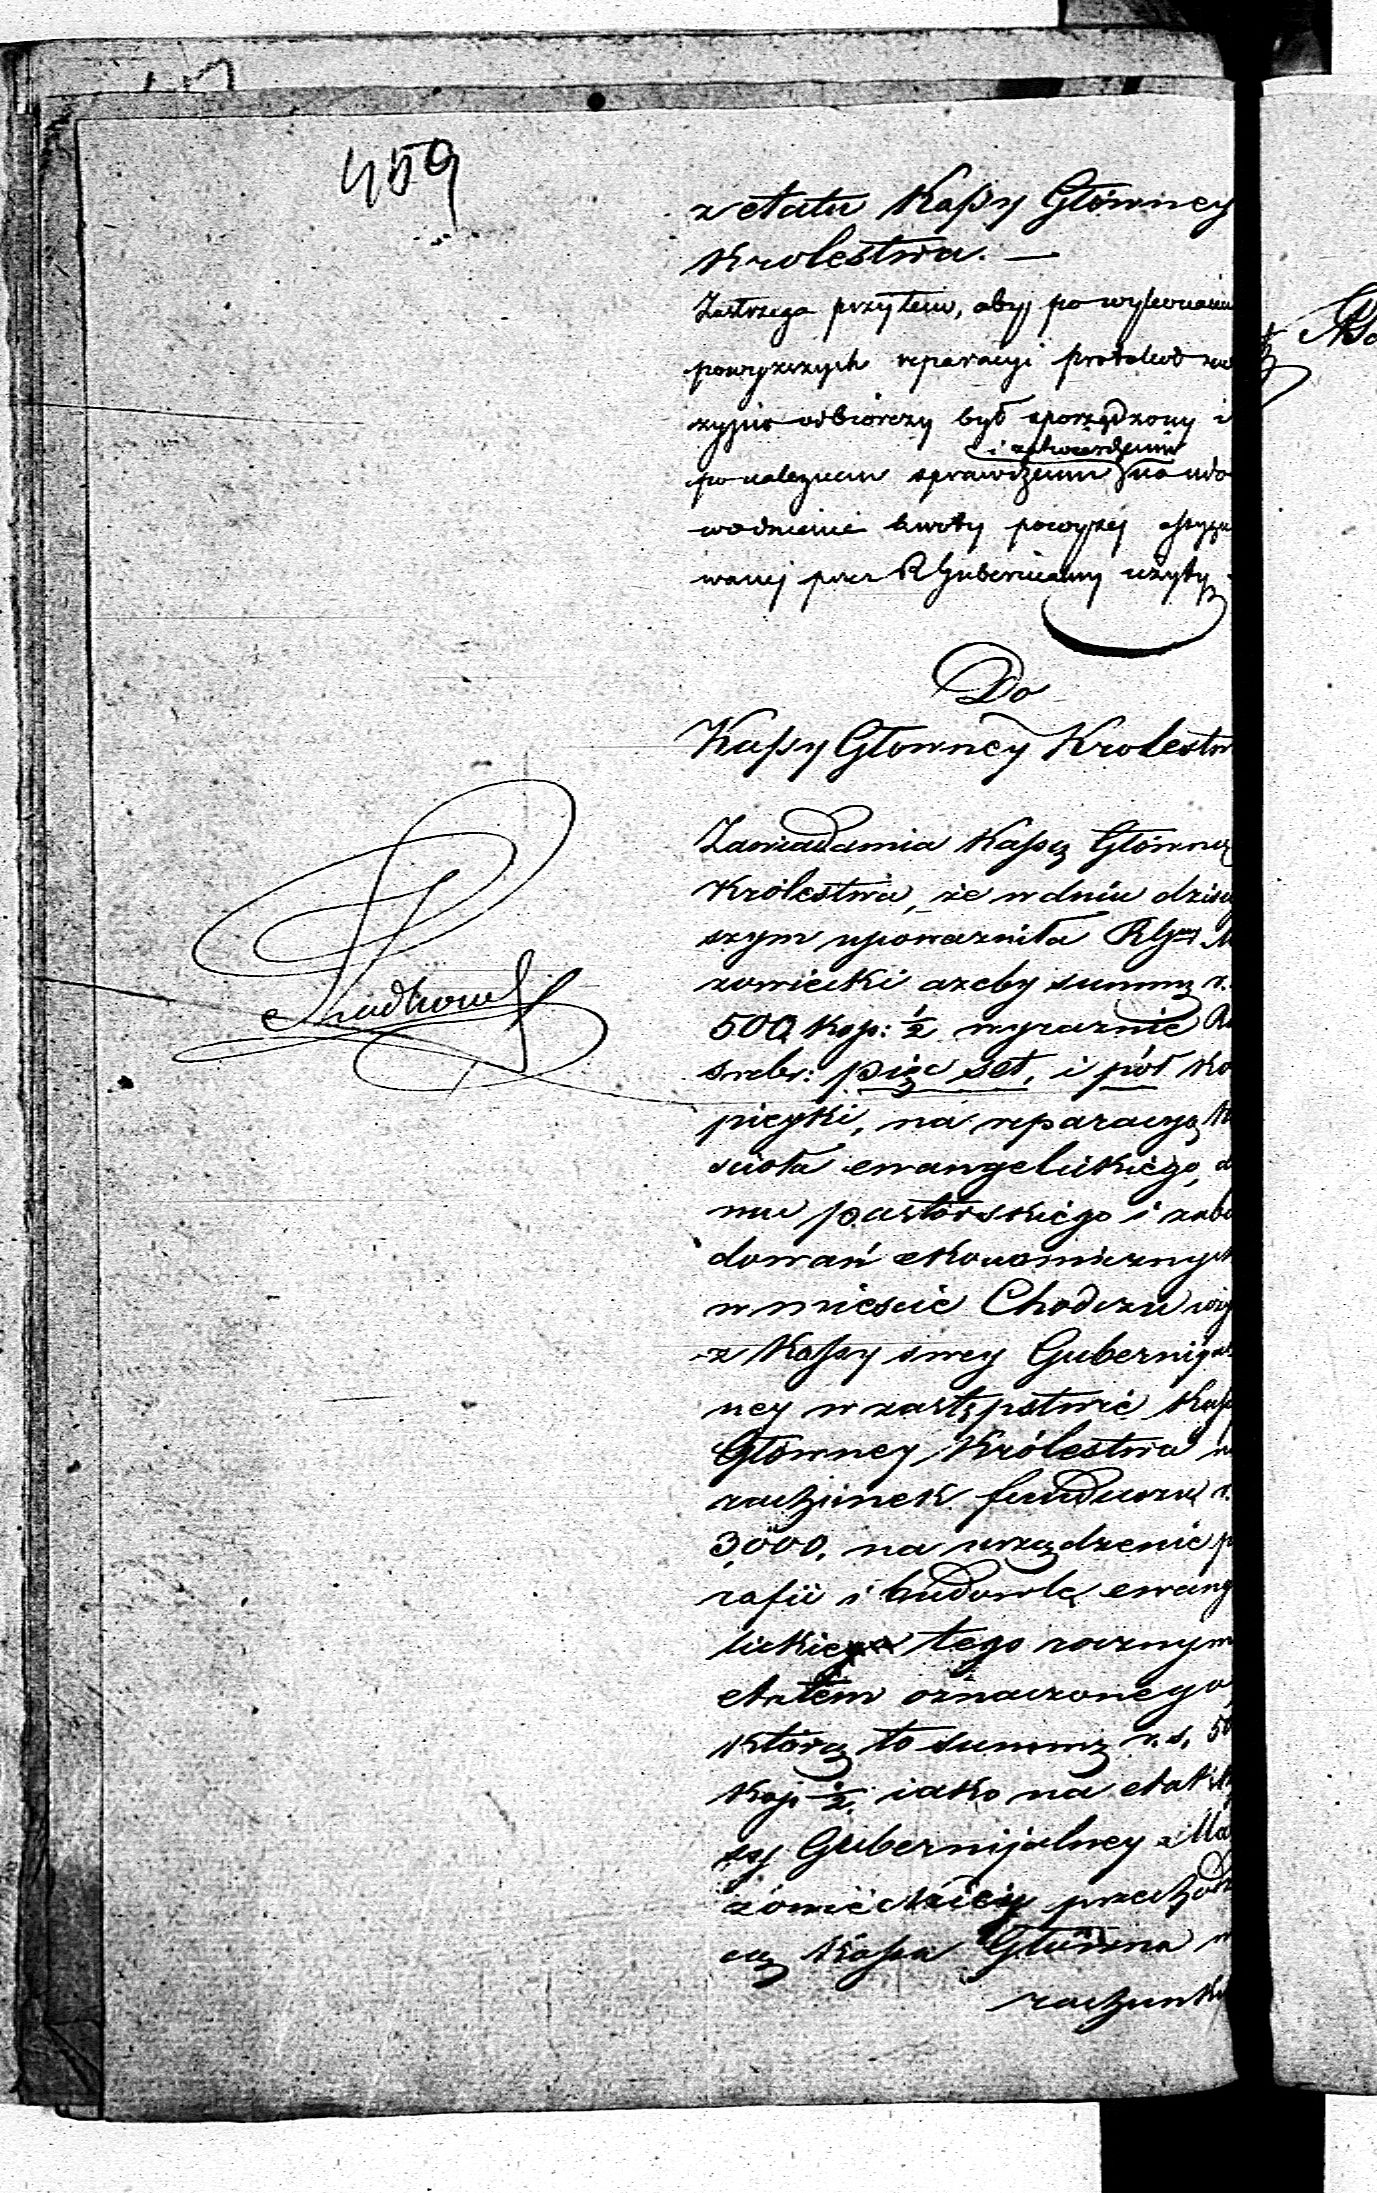 459
z etatu Kassy Główney
Krolestwa. —
Zastrzega przytem, aby po wykonaniu
powyższych reparacyi protokół re
zyjno odbiorczy był sporządzony i
i zatwierdzeniu
po należnem sprawdzeniu na udo
wodnienie kwoty powyżej assygno
wanej przez R Gubernialny użyty.
Do
Kassy Głowney Krolestw
Zawiadamia Kassę Główną
Królestwa, że w dniu dzisiey
szym upoważniła RGny M
zowiecki ażeby summę r.
500 kop: ½ wyraźnie R
srebr: pięc set, i pół ko
pieyki, na reparacyę k
scioła ewangelickiégo, d
mu pastorskiégo i zabu
dowań ekonomicznych
w miescié Chodczu
z Kassy swey Gubernijal
ney w zastępstwié Kass
Głowney Królestwa n
rachunek funduszu r.
3,000, na urządzenie p
rafii i budowlę ewang
lickie tego rocznym
etatem oznaczonego,
którą to summę r. s. 50
kop ½. iako na etat K
sy Gubernijalney Ma
zowiéckiéy przechodz
cą Kassa Główna w
rachunk